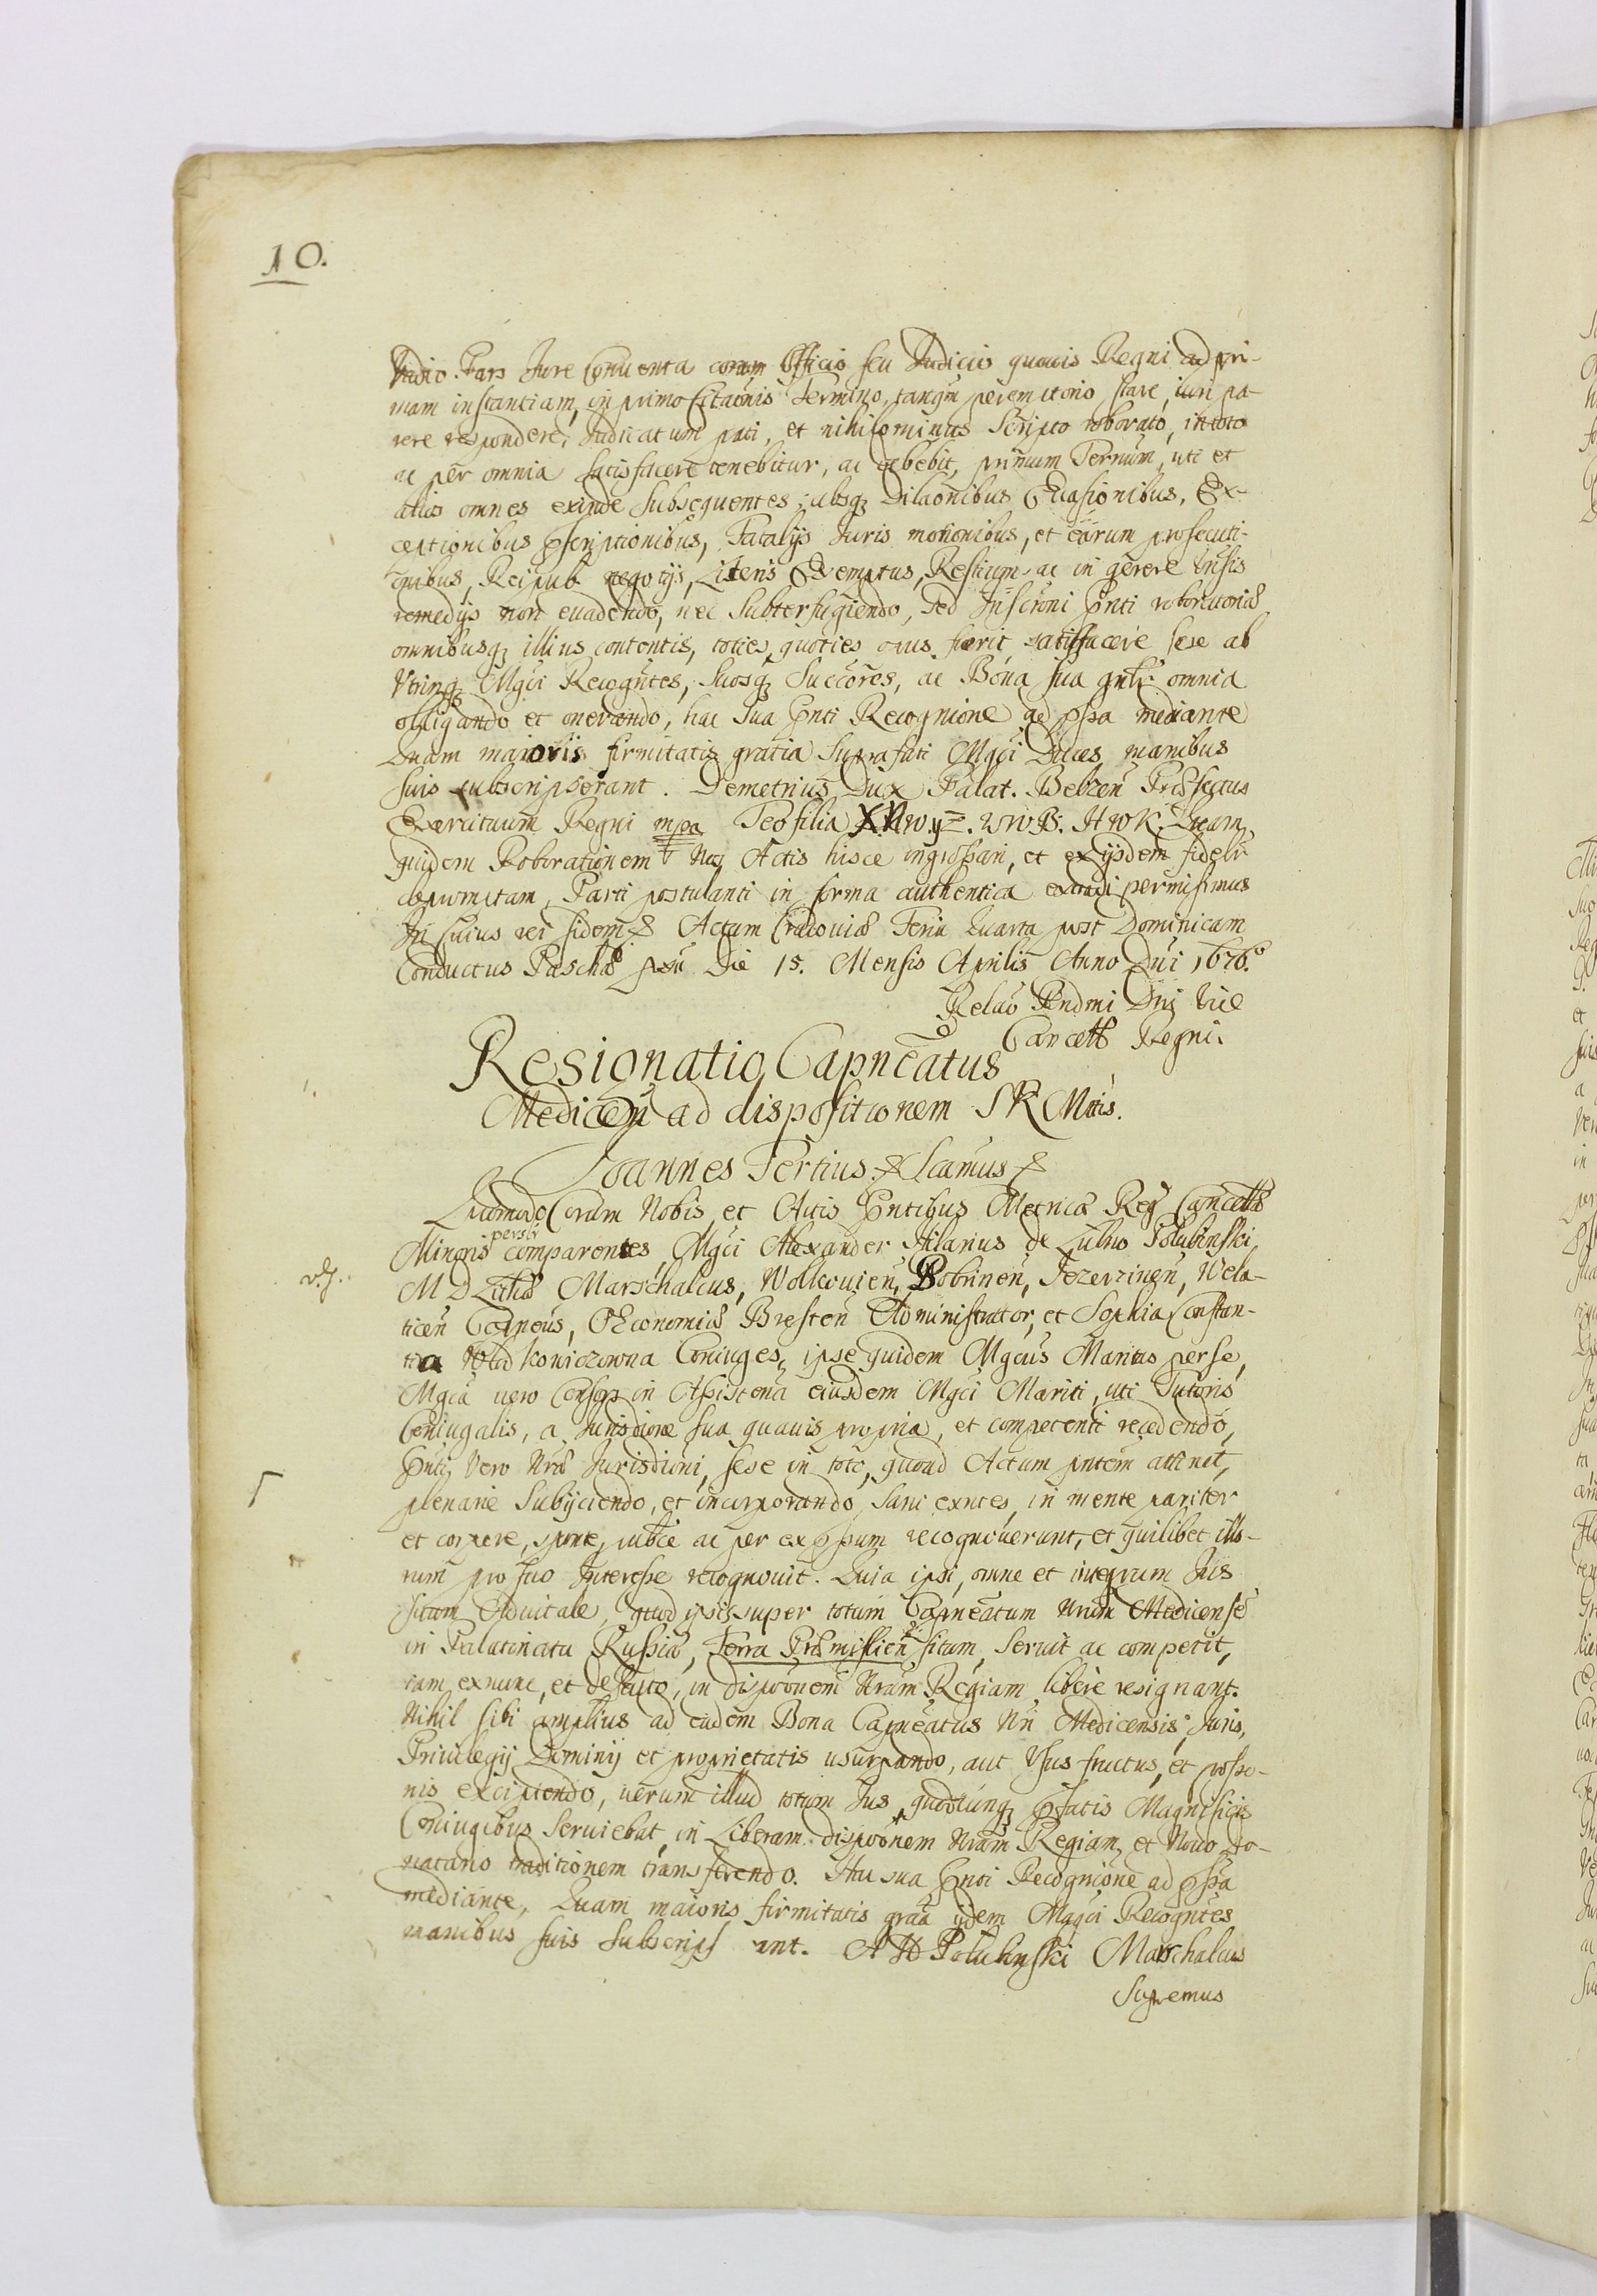 10.
Vadio. Pars Jure Conuenta coram Officio seu Judicio quouis Regni ad pri-
mam instantiam, in primo Citaōnis Termino, tanqm̄ peremtorio stare, iuri pa-
rere respondere, Judicatum pati, et nihilominus Scripto roborato, in toto
ac per omnia satisfacere tenebitur, ac debebit, primum Ternum, uti et
alios omnes exinde subsequentes; absq; Dilaōnibus Euasionibus, Ex-
ceptionibus pscriptionibus, Fatalijs Juris motionibus, et earum prosecuti-
onibus, Reipub negotijs, Literis Exemptus, Restium, ac in genere Iuris
remedijs non euadendo, nec Subterfugiendo, sed Inscrōni pnti roboratoriæ
omnibusq; illius contentis, toties, quoties opus fuerit satisfacere sese ab
Utrinq; Mgci Recogn̄tes, Suosq; Succōres, ac Bona sua gnlr omnia
obligando et onerando, hac Sua pnti Recognione ad pssa mediante
Quam maioris firmitatis gratia Suprafati Mgci Duces manibus
suis subscripserant. Demetrius Dux Palat. Belzen Præfectus
Exercituum Regni mpa Teofilia X N W y Z. W W B. H W K. Quam
quidem Roborationem Nos Actis hisce ingrossari, et ex ijsdem fideli
depromptam, Parti postulanti in forma authentica extradi permisimus
In Cuius rei fidem & Actum Cracouiæ Feria Quarta post Dominicam
Conductus Paschæ pxū Die 15. Mensis Aprilis Anno Dn̄i 1676.o
Relaō Rndmi Dni Vice
Cancell Regni.
Resignatio Capneatus
Medicen ad dispositionem S R Mttis.
Joannes Tertius & Scamus &
Quomodo Coram Nobis, et Actis pntibus Metricæ Reg Cancell
perslr
Minoris comparentes, Mgci Alexander Hilarius de Lubno Polubinski
M D Lithæ Marschalcus, Wolkouien, Bobrinen, Jezerzinen, Wela-
ticen Capneus, OEconomiæ Bresten Administrator, et Sophia Constan-
tia Wolodkowiczowna Coniuges, ipse quidem Mgcus Maritus per se,
Mgca uero Consors in Assistena eiusdem Mgci Mariti, uti Tutoris
Coniugalis, a Jurisdione sua quauis propria, et competenti recedendo,
pnti Vero Nræ Jurisdioni, sese in toto, quoad Actum pntem attinet,
plenarie Subijciendo, et incorporando, sani exntes, in mente pariter
et corpore, sponte, publce ac per expssum recognouerunt, et quilibet illo-
rum pro suo Interesse recognouit. Quia ipsi, omne et integrum Jus
suum Aduitale, quod ipsis super totum Capneatum Nrum Medicense
in Palatinatu Russiæ, Terra Præmislien situm, Seruit ac competit,
iam exnunc, et de facto, in dispōnem Nram Regiam libere resignant.
Nihil sibi amplius ad eadem Bona Capneatus Nri Medicensis, Juris,
Priuilegij Dominij et proprietatis usurpando, aut Usus fructus, et posse-
nis excipiendo, uerum illud totum Jus, quodcunq; pfatis Magnificis
Coniugibus Seruiebat, in Liberam dispōnem Nram Regiam, et Nouo do-
natario traditionem transferendo. Hac sua pnti Recognione ad pssa
mediante, Quam maioris firmitatis graa ijdem Magci Recogntes
manibus suis Subscripserant. A H Polubinski Marschalcus
Supremus